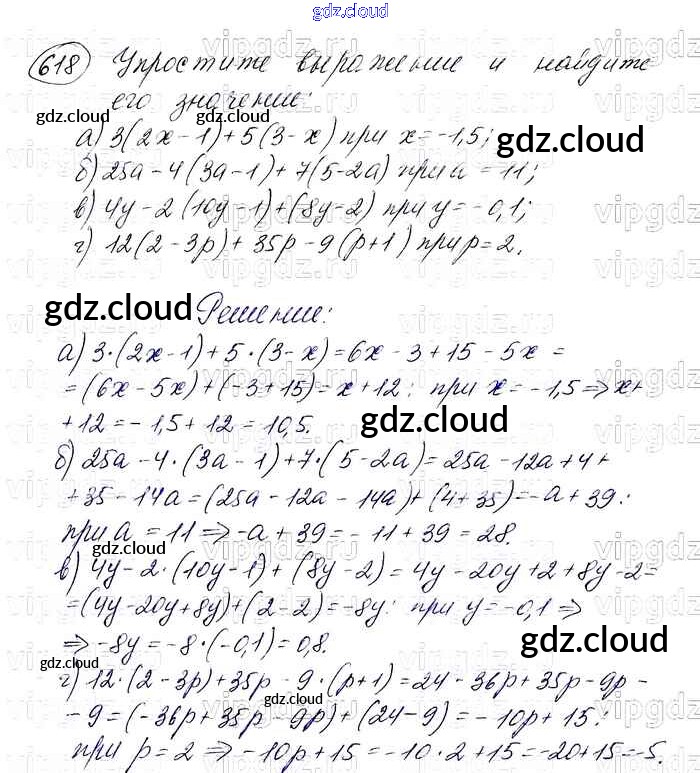 gdz.cloud
618 Упростите выражение и найдите
его значение:
а) 3(2x-1)+5(3-x) при x=-1,5;
б) 25a-4(3a-1)+7(5-2a) при a=11;
в) 4y-2(10y-1)+(8y-2) при y=-0,1;
г) 12(2-3p)+35p-9(p+1) при p=2.
Решение:
а) 3·(2x-1)+5·(3-x)=6x-3+15-5x=
=(6x-5x)+(-3+15)=x+12: при x=-1,5⇒x+
+12=-1,5+12=10,5.
б) 25a-4·(3a-1)+7·(5-2a)=25a-12a+4+
+35-14a=(25a-12a-14a)+(4+35)=-a+39:
при a=11⇒-a+39=-11+39=28.
в) 4y-2·(10y-1)+(8y-2)=4y-20y+2+8y-2=
=(4y-20y+8y)+(2-2)=-8y: при y=-0,1⇒
⇒-8y=-8·(-0,1)=0,8.
г) 12·(2-3p)+35p-9·(p+1)=24-36p+35p-9p-
-9=(-36p+35p-9p)+(24-9)=-10p+15:
при p=2⇒-10p+15=-10·2+15=-20+15=-5.